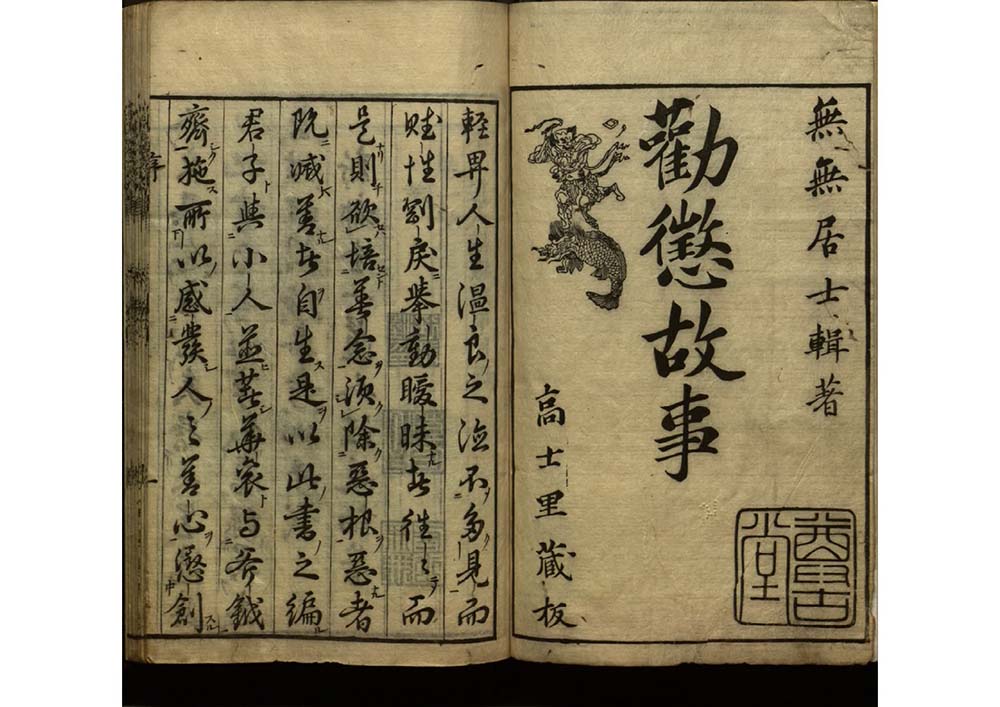 無無居士輯著
勸懲故事
高士里藏板
堂
輕畀人生温良之不多見而
賦性剛戾舉動曖昧者往〻而
是則欲培善念須除惡根惡者
既滅善者自生是以此書之編
君子與小人並華袞与斧鉞
齊施所以感發人之善心懲創
序
一